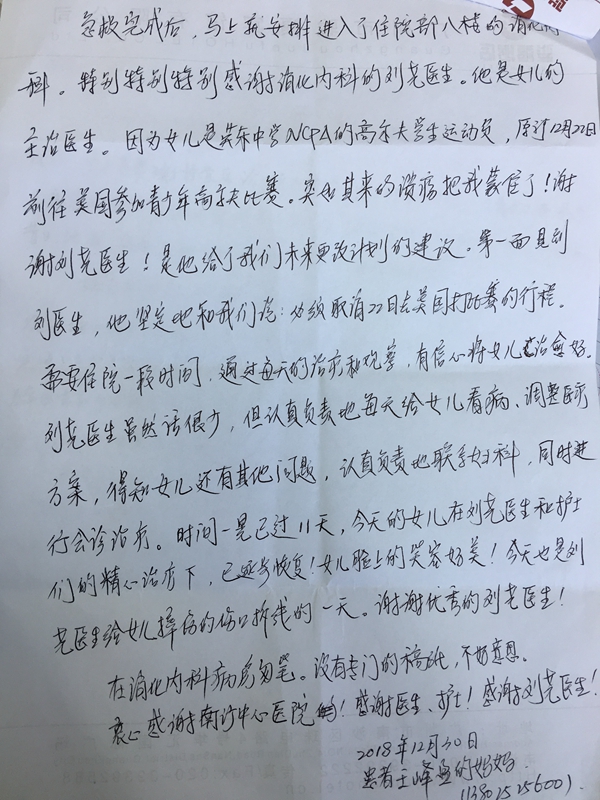 急救完成后，马上就安排进入了住院部八楼的消化内
科。特别特别特别感谢消化内科的刘尧医生。他是女儿的
主治医生。因为女儿是英东中学NCPA的高尔夫学生运动员，原计12月22日
前往美国参加青少年高尔夫比赛。突如其来的溃疡把我蒙住了！谢
谢刘尧医生！是他给了我们未来更改计划的建议。第一面见到
刘医生，他坚定地和我们说：必须取消22日去美国打比赛的行程。
需要住院一段时间，通过每天的治疗和观察，有信心将女儿治愈好。
刘尧医生虽然话很少，但认真负责地每天给女儿看病、调整医疗
方案，得知女儿还有其他问题，认真负责地联系妇科，同时进
行会诊治疗。时间一晃已过11天，今天的女儿在刘尧医生和护士
们的精心治疗下，已逐步恢复！女儿脸上的笑容好美！今天也是刘
尧医生给女儿摔伤的伤口拆线的一天。谢谢优秀的刘尧医生！
在消化内科病房匆笔。没有专门的稿纸，不好意思。
衷心感谢南沙中心医院！感谢医生、护士！感谢刘尧医生！
2018年12月30日
患者王峰盈的妈妈
(13802525600)